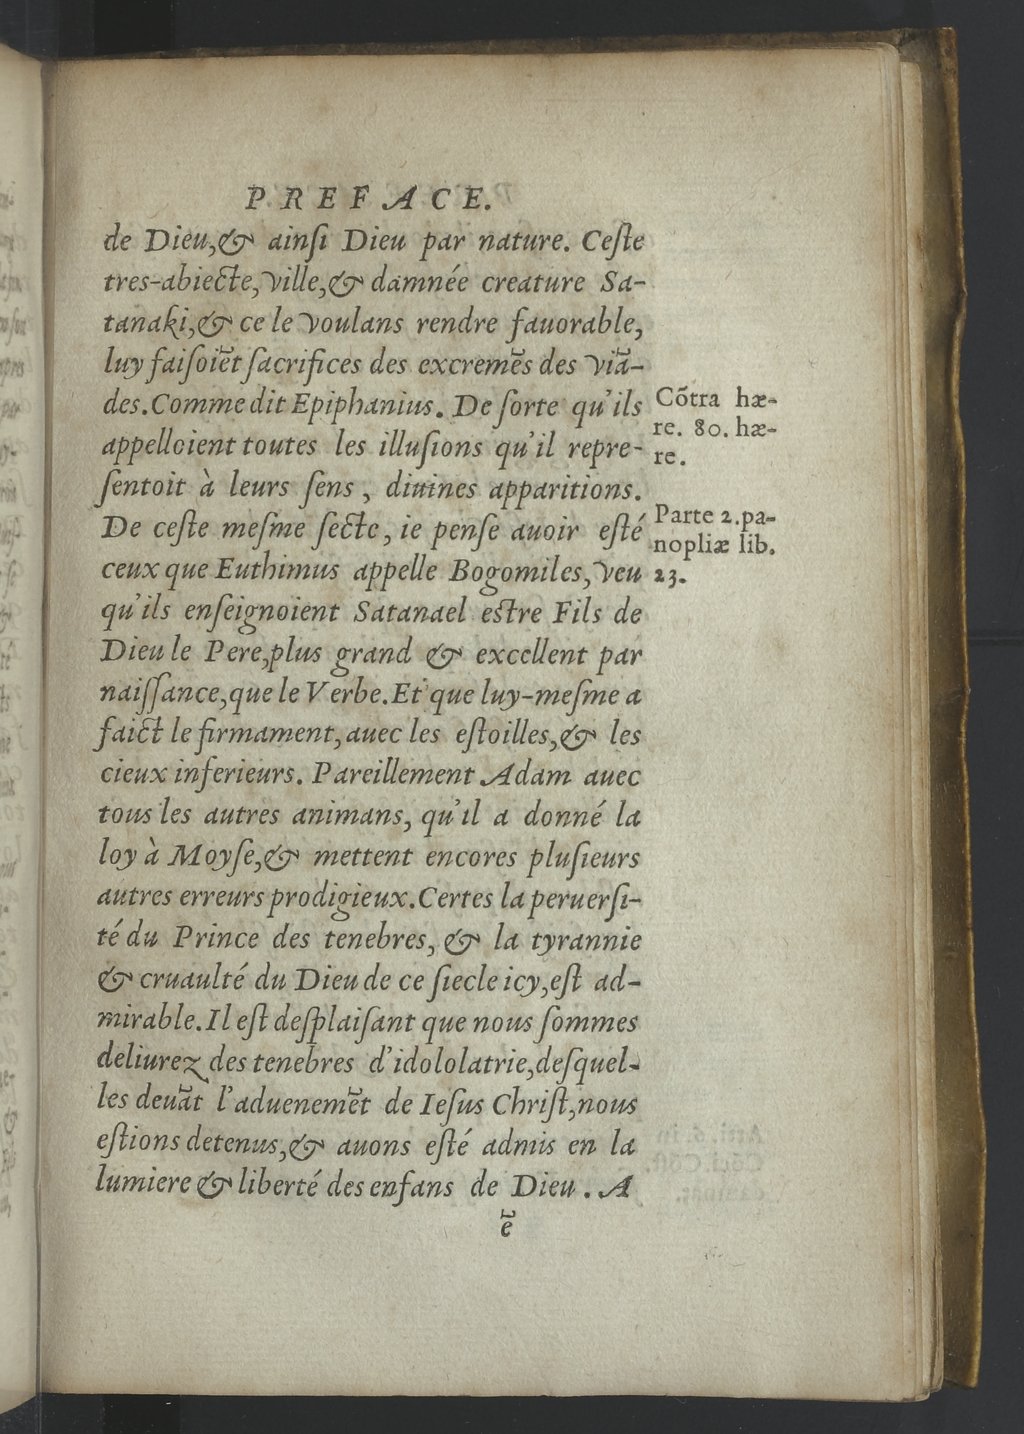 PREFACE.
de Dieu, & ainſi Dieu par nature. Ceſte
tres-abiecte, ville, & damnée creature Sa-
tanaki, & ce le voulans rendre fauorable,
luy faiſoiẽt ſacrifices des excremẽs des viã-
des. Comme dit Epiphanius. De ſorte qu'ils
appelloient toutes les illuſions qu'il repre-
ſentoit à leurs ſens, diuines apparitions.
De ceſte meſme ſecte, ie penſe auoir eſté
ceux que Euthimus appelle Bogomiles, veu
qu'ils enſeignoient Satanael eſtre Fils de
Dieu le Pere, plus grand & excellent par
naiſſance, que le Verbe. Et que luy-meſme a
faict le firmament, auec les eſtoilles, & les
cieux inferieurs. Pareillement Adam auec
tous les autres animans, qu'il a donné la
loy à Moyſe, & mettent encores pluſieurs
autres erreurs prodigieux. Certes la peruerſi-
té du Prince des tenebres, & la tyrannie
& cruaulté du Dieu de ce ſiecle icy, eſt ad-
mirable. Il eſt deſplaiſant que nous ſommes
deliurez des tenebres d'idololatrie, deſquel-
les deuãt l'aduenemẽt de Ieſus Chriſt, nous
eſtions detenus, & auons eſté admis en la
lumiere & liberté des enfans de Dieu. A
ẽ
Cõtra hæ-
re. 80. hæ-
re.
Parte 2. pa-
nopliæ lib.
23.